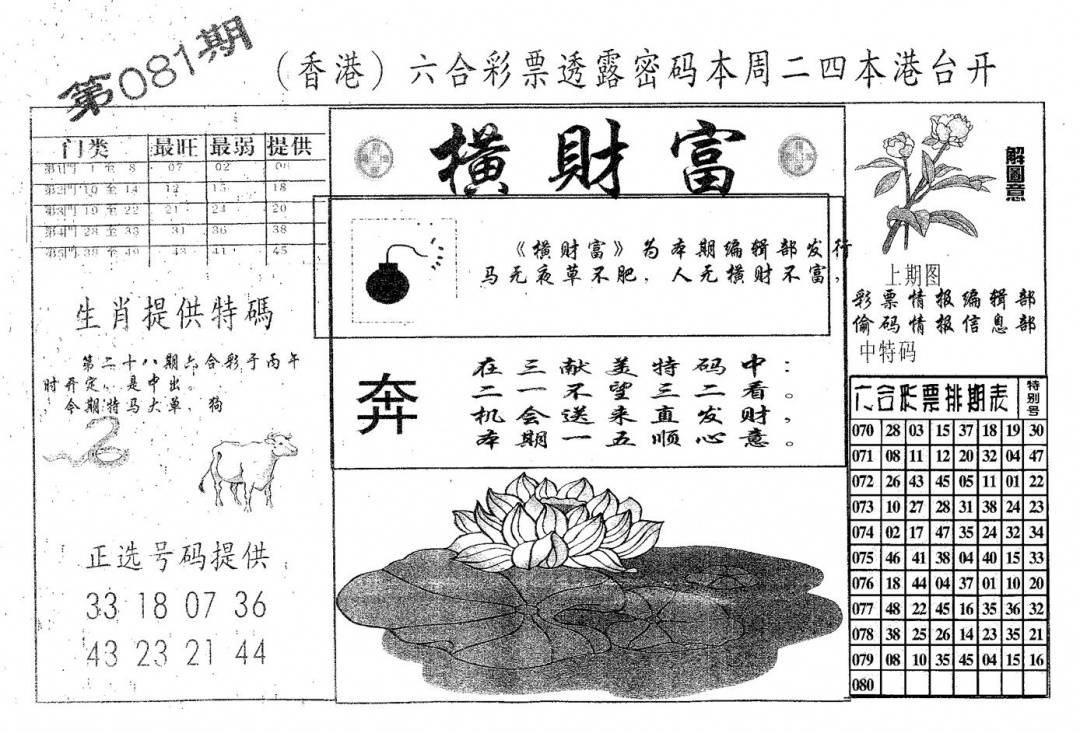 第081期
（香港）六合彩票透露密码本周二四本港台开
门类 最旺 最弱 提供
第1門 1 至 8 07 02 06
第2門 10 至 14 12 15 18
第3門 19 至 22 21 24 20
第4門 28 至 33 31 36 38
第5門 38 至 49 43 41 45
生肖提供特碼
第二十八期六合彩于丙午
时开定，是中出。
，令期特马大单，狗
正选号码提供
33 18 07 36
43 23 21 44
橫財富
《横财富》为本期编辑部发行
马无夜草不肥，人无横财不富，
奔
在三献美特码中：
二一不望三二看。
机会送来直发财，
本期一五顺心意。
解圖意
上期图
彩票情报编辑部
偷码情报信息部
中特码
六合彩票排期表 特别号
070 28 03 15 37 18 19 30
071 08 11 12 20 32 04 47
072 26 43 45 05 11 01 22
073 10 27 28 31 38 24 23
074 02 17 47 35 24 32 34
075 46 41 38 04 40 15 33
076 18 44 04 37 01 10 20
077 48 22 45 16 35 36 32
078 38 25 26 14 23 35 21
079 08 10 35 45 04 15 16
080